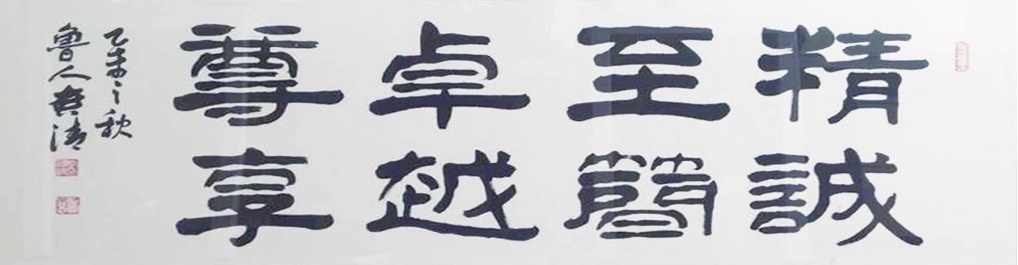 精誠
至簡
卓越
尊享
乙未之秋
魯人